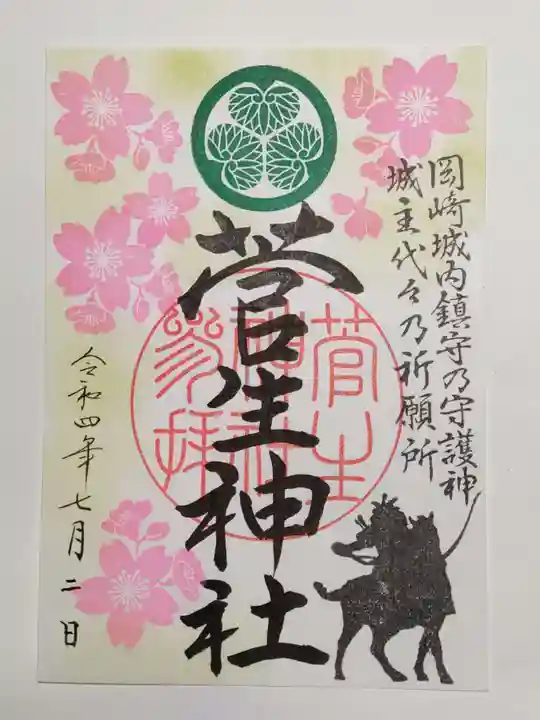 岡崎城内鎮守乃守護神
城主代々乃祈願所
菅生神社
菅生
神社
参拝
令和四年七月二日